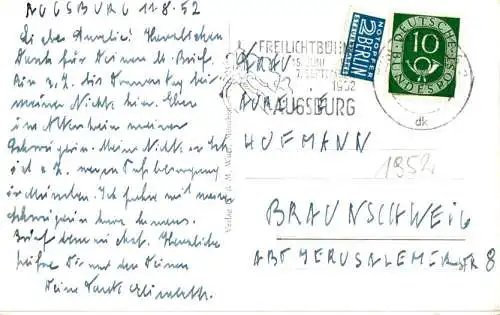 AUGSBURG 11.8.52
Liebe Aurelie! Herzlichen
Dank für Deinen lb. Brief.
Bin z. Z. bis Donnerstag bei
meiner Nichte hier. Eben
im Altenheim meiner
Schwägerin. Meine Nichte
ist z. Z. wegen
in München. Ich fahre mit meiner
Schwägerin
Brief Herzliche
Grüße Dir und den Deinen
Deine Tante Elisabeth.
FREILICHTBÜHNE
15. JUNI
7. SEPT.
1952
AUGSBURG
NOTOPFER
2 BERLIN
STEUERMARKE
DEUTSCHE
BUNDESPOST
10
dk
FRAU
AURELIE
HOFMANN
1952
BRAUNSCHWEIG
ABT JERUSALEMERSTR 8